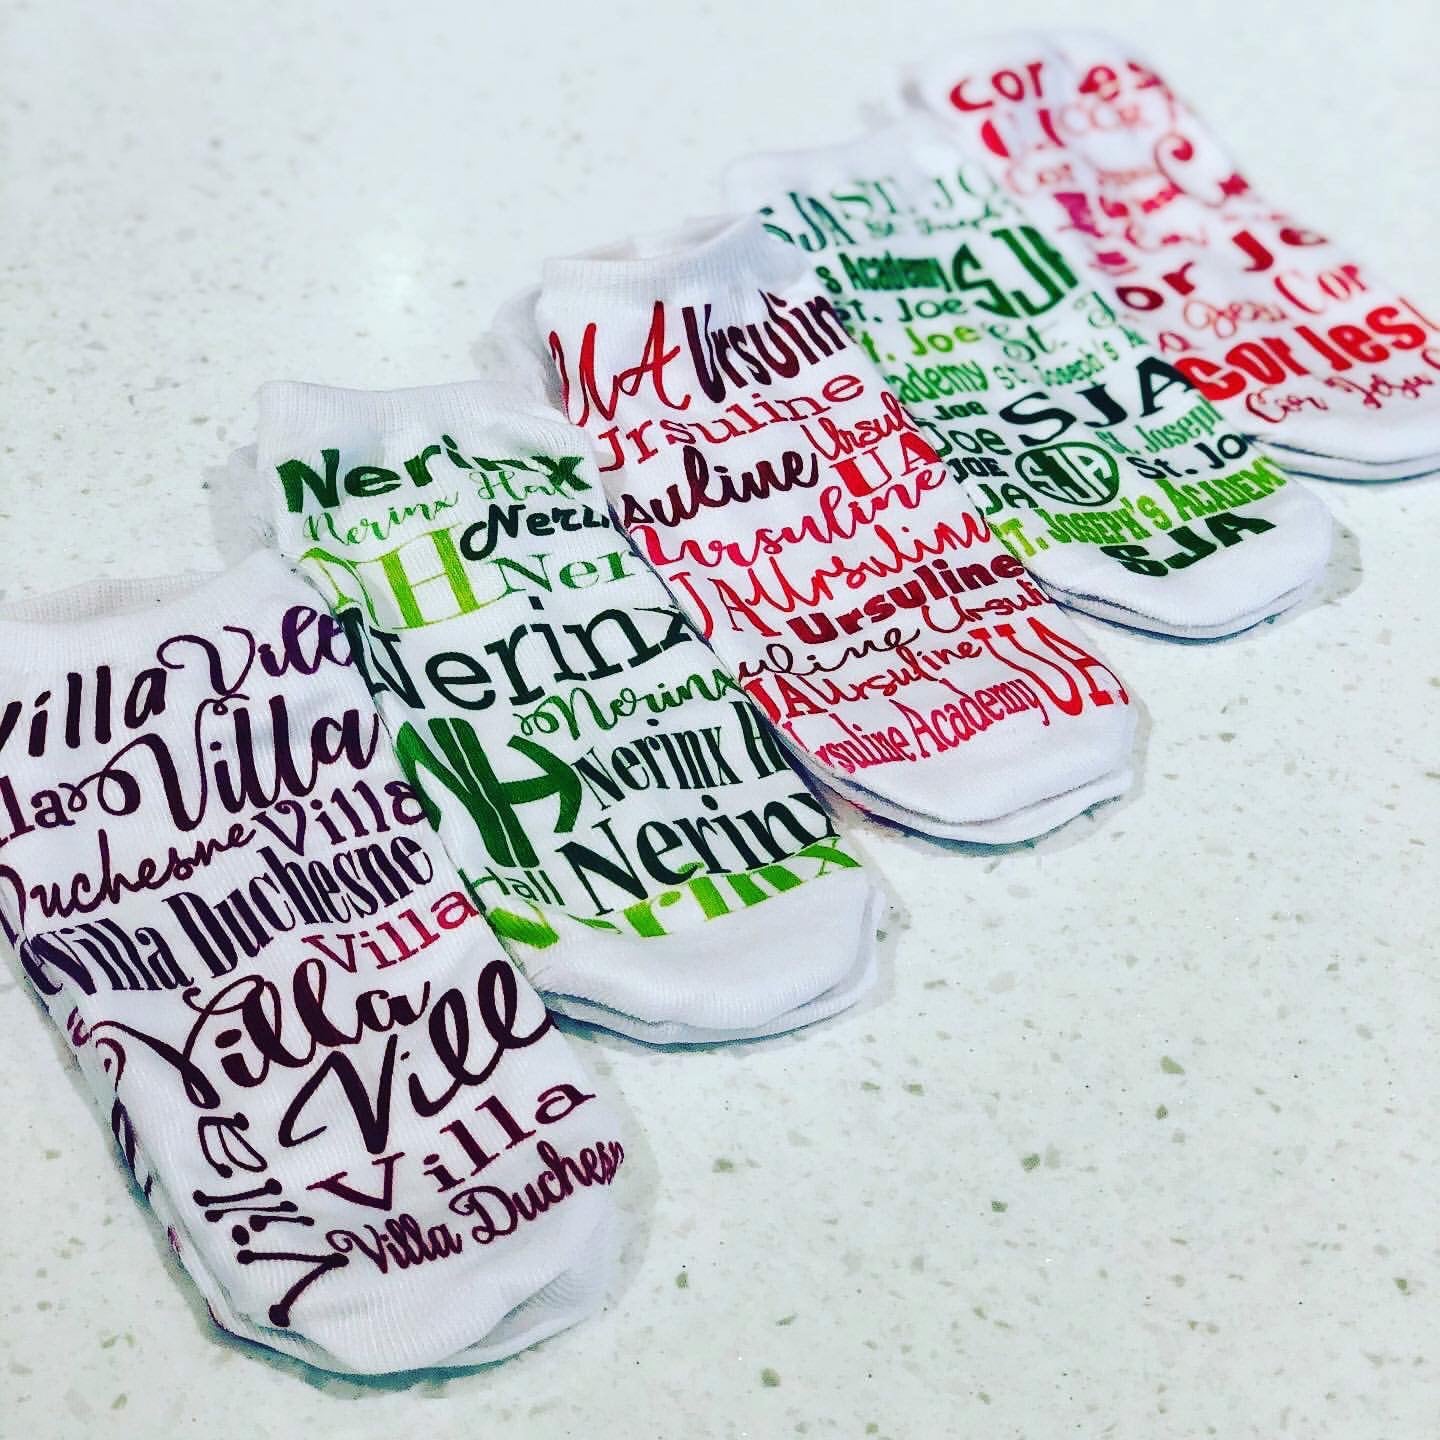 Villa Vill
Villa
Duchesne Villa
Villa Duchesne
Villa
Villa
Vill
Villa
Villa
Villa Duchesn
Nerinx
Nerinx Hall
NH Nerin
Ner
Nerinx
Nerinx
NH Nerinx H
Hall Nerinx
Nerinx
UA Ursulin
Ursuline
suline Ursul
UA
Ursuline
UA Ursuline
Ursuline Ursuli
uline Ursuline
UA Ursuline UA
Ursuline Academy
SJA ST. JO
St. Joseph
s Academy SJA
St. Joe
St. Joe St.
cademy St. Joseph's A
Joe SJA
Joe
JOE SJA St. Joseph
SJA St. Jo
ST. JOSEPH'S ACADEMY
SJA
Cor Jes
Cor
Cor
or Je
Cor
Cor Jes
Cor Jesu